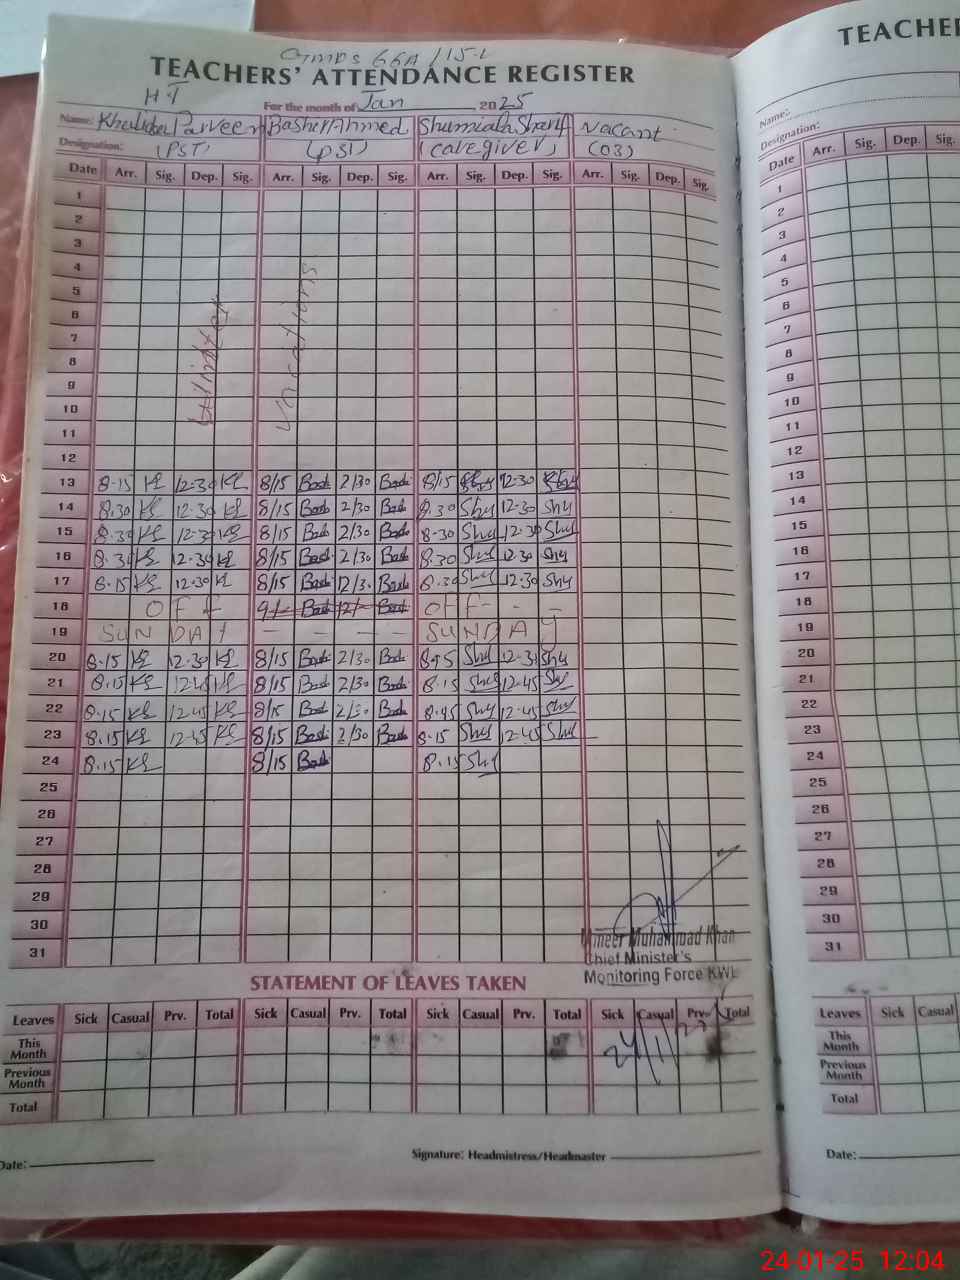 GMPS 66A/15-L
TEACHERS' ATTENDANCE REGISTER
H.T
For the month of Jan 2025
Name: Parveen Basher Ahmed Sharif Vacant
Designation: (PST) (PST) (caregiver) (03)
Date Arr. Sig. Dep. Sig. Arr. Sig. Dep. Sig. Arr. Sig. Dep. Sig. Arr. Sig. Dep. Sig.
1
2
3
4
5
6
7
8
9
10
11
12
Winter Vacations
13 8.15 12.30 8/15 Bash 2/30 Bash 8/15 Shy 12.30 Shy
14 8.30 12.30 8/15 Bash 2/30 Bash 8.30 Shy 12.30 Shy
15 8.30 12.30 8/15 Bash 2/30 Bash 8.30 Shy 12.30 Shy
16 8.30 12.30 8/15 Bash 2/30 Bash 8.30 Shy 12.30 Shy
17 8.15 12.30 8/15 Bash 12/30 Bash 8.30 Shy 12.30 Shy
18 OFF 9/- Bash 12/- Bash OFF - - -
19 SUNDAY - - - - SUNDAY
20 8.15 12.30 8/15 Bash 2/30 Bash Shy 12.30 Shy
21 8.15 12.45 8/15 Bash 2/30 Bash 8.15 Shy 12.45 Shy
22 8.15 12.45 8/15 Bash 2/30 Bash Shy 12.45 Shy
23 8.15 12.45 8/15 Bash 2/30 Bash 8.15 Shy 12.45 Shy
24 8.15 8/15 Bash 8.15 Shy
25
26
27
28
29
30
31
Muhammad Khan
Chief Minister's
Monitoring Force KWL
STATEMENT OF LEAVES TAKEN
Leaves Sick Casual Prv. Total Sick Casual Prv. Total Sick Casual Prv. Total Sick Casual Prv. Total
This Month
Previous Month
Total
24/1/25
Date:
Signature: Headmistress/Headmaster
TEACHE
Name:
Designation:
Date Arr. Sig. Dep. Sig.
1
2
3
4
5
6
7
8
9
10
11
12
13
14
15
16
17
18
19
20
21
22
23
24
25
26
27
28
29
30
31
Leaves Sick Casual
This Month
Previous Month
Total
Date:
24-01-25 12:04